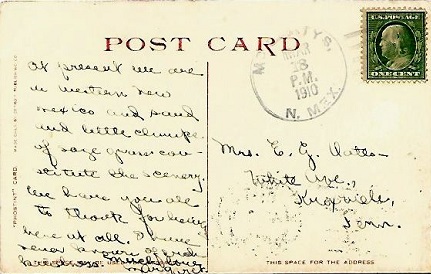 POST CARD
U.S. POSTAGE
ONE CENT
MAR
P.M.
1910
N. MEX.
At present we are
in western new
mexico and sand
and little clumps
of sage grass con-
stitute the scenery.
We have you all
to thank for being
here at all. I have
never known
much love
Margaret
"PHOSTINT" CARD
Mrs. E. G. Oates
White Ave.,
Knoxville,
Tenn.
THIS SPACE FOR THE ADDRESS